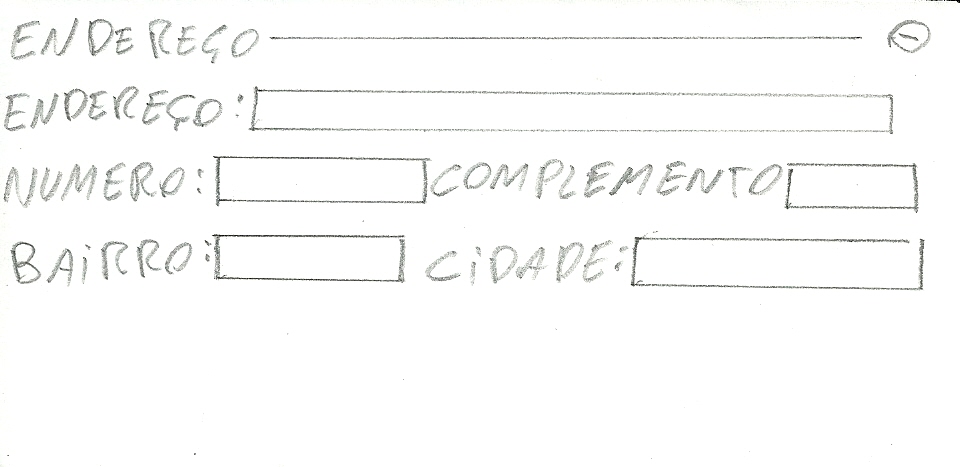 ENDEREÇO
ENDEREÇO:
NUMERO: COMPLEMENTO
BAiRRO: CiDADE: